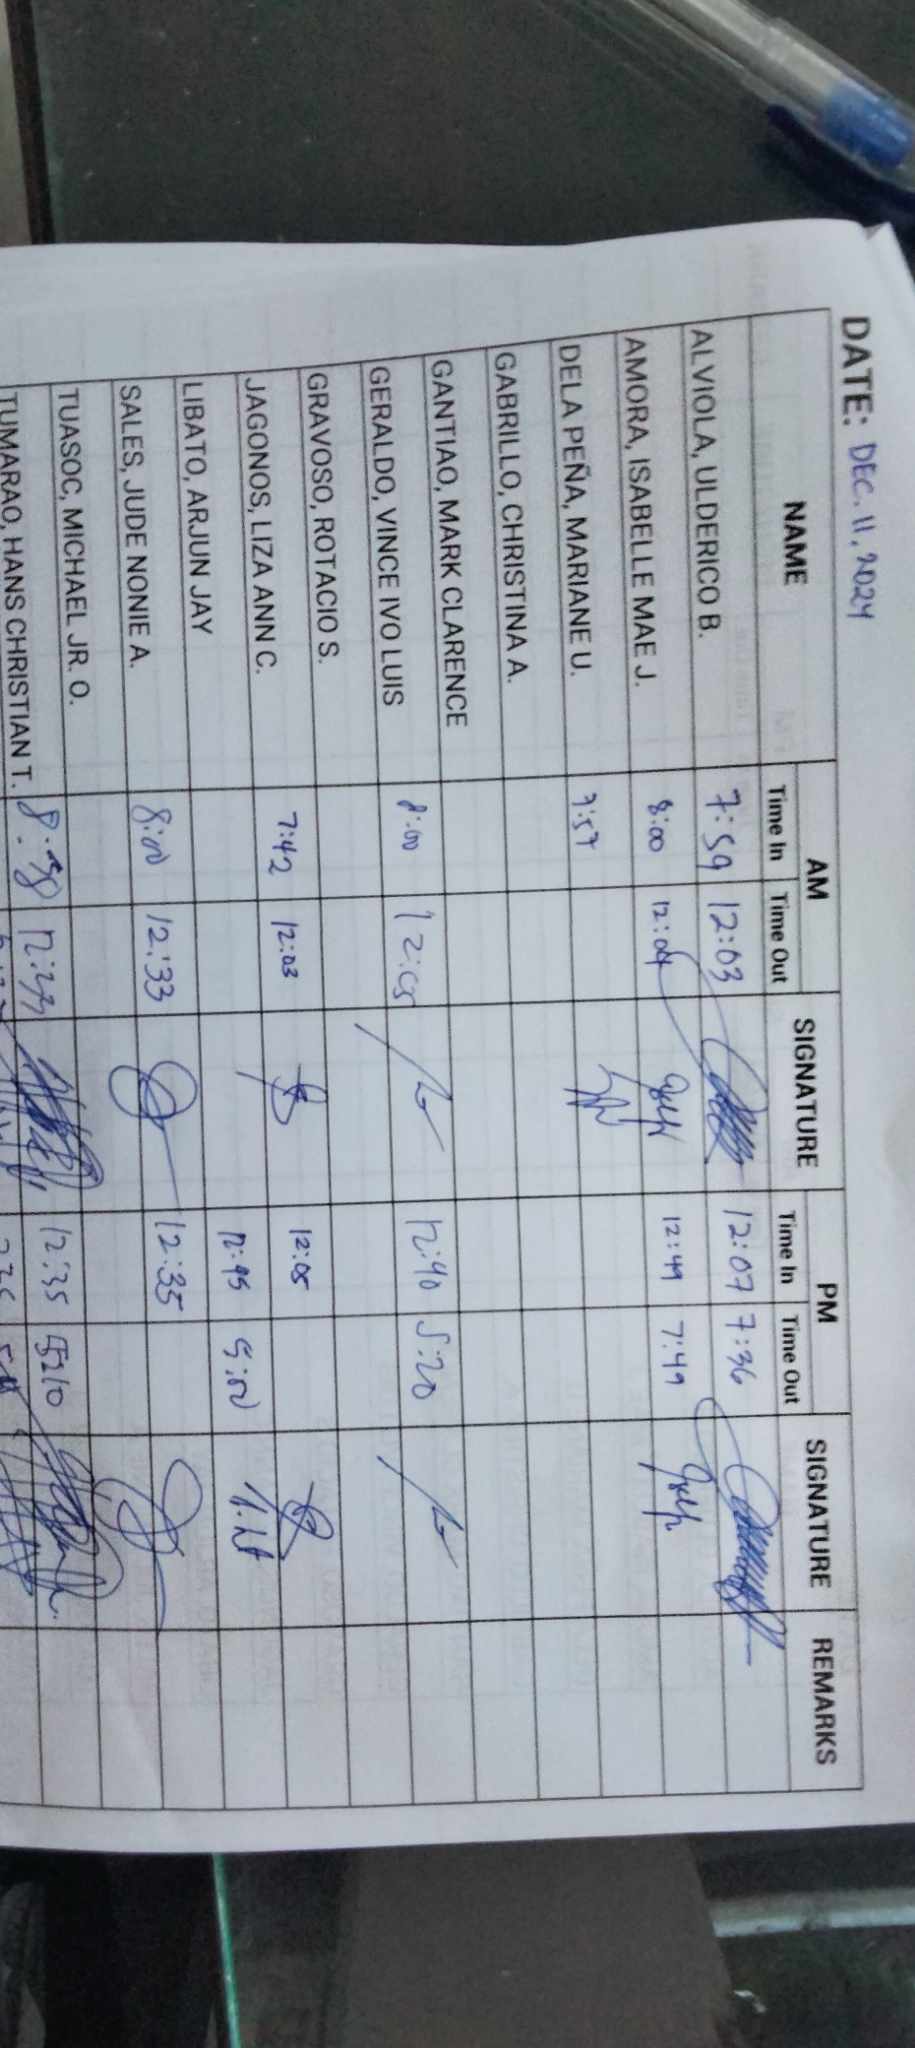 DATE: DEC. 11, 2024
NAME AM SIGNATURE PM SIGNATURE REMARKS
Time In Time Out Time In Time Out
ALVIOLA, ULDERICO B. 7:59 12:03 12:07 7:36
AMORA, ISABELLE MAE J. 8:00 12:04 12:49 7:49
DELA PEÑA, MARIANE U. 7:57
GABRILLO, CHRISTINA A.
GANTIAO, MARK CLARENCE
GERALDO, VINCE IVO LUIS 8:00 12:05 12:40 5:20
GRAVOSO, ROTACIO S.
JAGONOS, LIZA ANN C. 7:42 12:03 12:05
LIBATO, ARJUN JAY 12:45 5:00
SALES, JUDE NONIE A. 8:00 12:33 12:35
TUASOC, MICHAEL JR. O.
TUMARAO, HANS CHRISTIAN T. 12:35